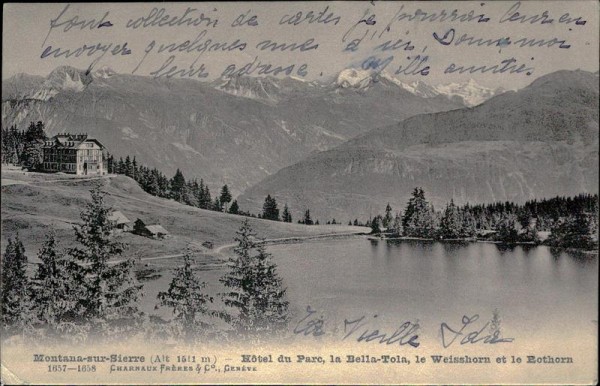 font collection de cartes je pourrai leur en
envoyer quelques unes d'ici, Donne-moi
leur adresse. Mille amitiés
La Vieille Ida
Montana-sur-Sierre (Alt 1511 m) – Hôtel du Parc, la Bella-Tola, le Weisshorn et le Rothorn
1657—1658 CHARNAUX FRÈRES & Co., GENÈVE